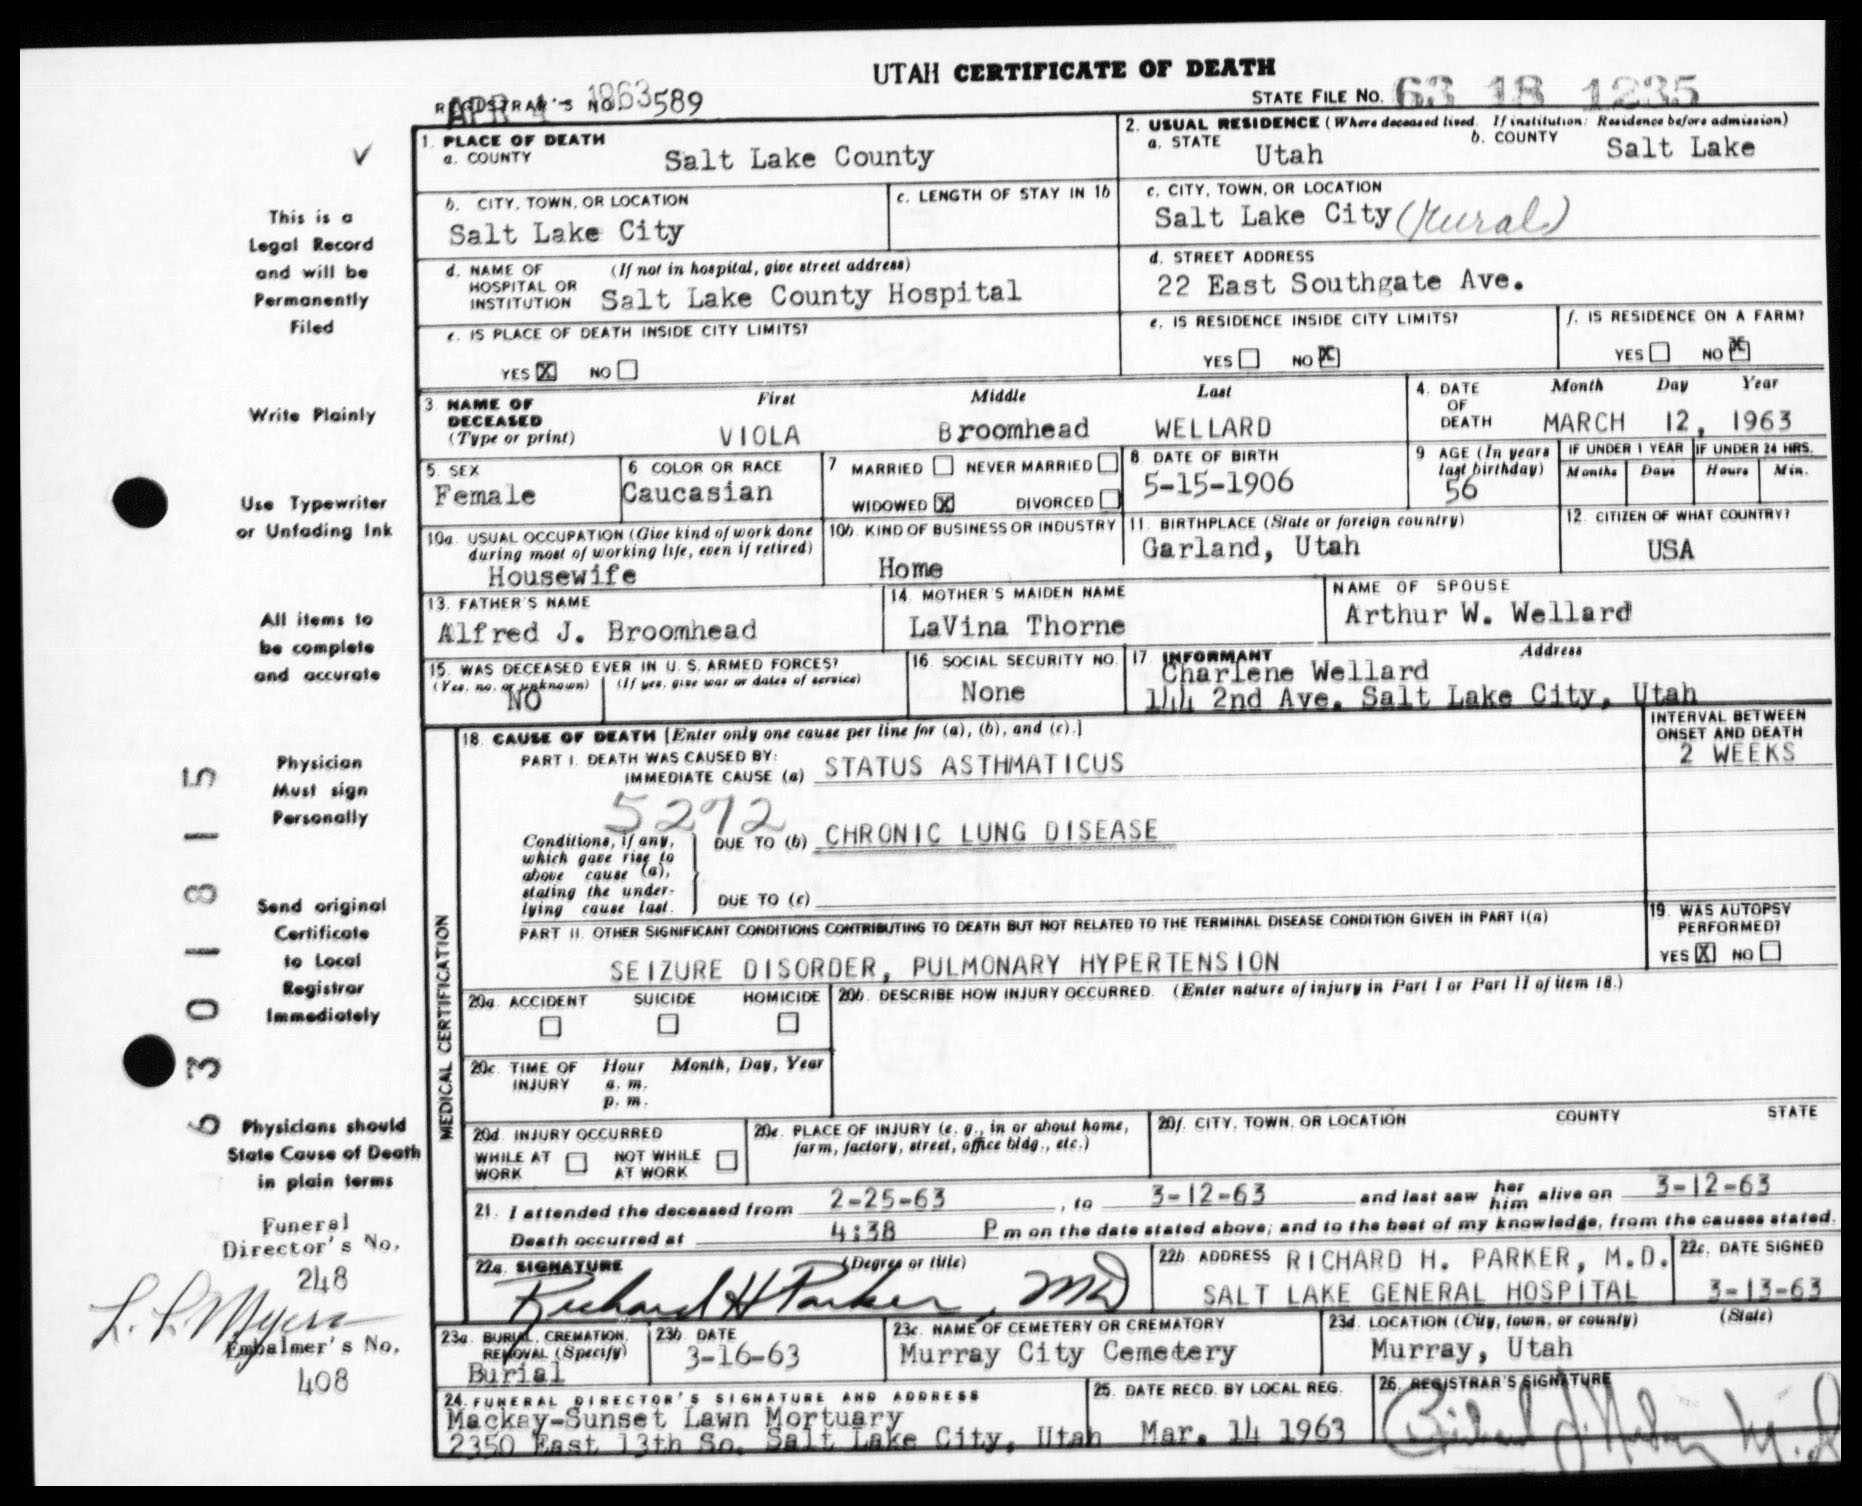 UTAH CERTIFICATE OF DEATH
REGISTRAR'S NO. 589
APR 4 - 1963
STATE FILE NO. 63 18 1235
1. PLACE OF DEATH
a. COUNTY Salt Lake County
2. USUAL RESIDENCE (Where deceased lived. If institution: Residence before admission)
a. STATE Utah b. COUNTY Salt Lake
b. CITY, TOWN, OR LOCATION
Salt Lake City
c. LENGTH OF STAY IN 1b
c. CITY, TOWN, OR LOCATION
Salt Lake City (rural)
d. NAME OF HOSPITAL OR INSTITUTION (If not in hospital, give street address)
Salt Lake County Hospital
d. STREET ADDRESS
22 East Southgate Ave.
e. IS PLACE OF DEATH INSIDE CITY LIMITS?
YES X NO
e. IS RESIDENCE INSIDE CITY LIMITS?
YES NO X
f. IS RESIDENCE ON A FARM?
YES NO X
3. NAME OF DECEASED (Type or print)
First Middle Last
VIOLA Broomhead WELLARD
4. DATE OF DEATH Month Day Year
MARCH 12, 1963
5. SEX
Female
6. COLOR OR RACE
Caucasian
7 MARRIED NEVER MARRIED
WIDOWED X DIVORCED
8. DATE OF BIRTH
5-15-1906
9 AGE (In years last birthday)
56
IF UNDER 1 YEAR IF UNDER 24 HRS.
Months Days Hours Min.
10a. USUAL OCCUPATION (Give kind of work done during most of working life, even if retired)
Housewife
10b. KIND OF BUSINESS OR INDUSTRY
Home
11. BIRTHPLACE (State or foreign country)
Garland, Utah
12. CITIZEN OF WHAT COUNTRY?
USA
13. FATHER'S NAME
Alfred J. Broomhead
14. MOTHER'S MAIDEN NAME
LaVina Thorne
NAME OF SPOUSE
Arthur W. Wellard
15. WAS DECEASED EVER IN U. S. ARMED FORCES?
(Yes, no, or unknown) (If yes, give war or dates of service)
NO
16. SOCIAL SECURITY NO.
None
17. INFORMANT Address
Charlene Wellard
144 2nd Ave. Salt Lake City, Utah
MEDICAL CERTIFICATION
18. CAUSE OF DEATH [Enter only one cause per line for (a), (b), and (c).]
INTERVAL BETWEEN ONSET AND DEATH
PART I. DEATH WAS CAUSED BY:
IMMEDIATE CAUSE (a) STATUS ASTHMATICUS
2 WEEKS
5272
Conditions, if any, which gave rise to above cause (a), stating the underlying cause last.
DUE TO (b) CHRONIC LUNG DISEASE
DUE TO (c)
PART II. OTHER SIGNIFICANT CONDITIONS CONTRIBUTING TO DEATH BUT NOT RELATED TO THE TERMINAL DISEASE CONDITION GIVEN IN PART I(a)
SEIZURE DISORDER, PULMONARY HYPERTENSION
19. WAS AUTOPSY PERFORMED?
YES X NO
20a. ACCIDENT SUICIDE HOMICIDE
20b. DESCRIBE HOW INJURY OCCURRED. (Enter nature of injury in Part I or Part II of item 18.)
20c. TIME OF INJURY Hour Month, Day, Year
a. m.
p. m.
20d. INJURY OCCURRED
WHILE AT WORK NOT WHILE AT WORK
20e. PLACE OF INJURY (e. g., in or about home, farm, factory, street, office bldg., etc.)
20f. CITY, TOWN, OR LOCATION COUNTY STATE
21. I attended the deceased from 2-25-63, to 3-12-63 and last saw her him alive on 3-12-63
Death occurred at 4:38 P m on the date stated above; and to the best of my knowledge, from the causes stated.
22a. SIGNATURE (Degree or title)
Richard H Parker, MD
22b ADDRESS RICHARD H. PARKER, M.D.
SALT LAKE GENERAL HOSPITAL
22c. DATE SIGNED
3-13-63
23a. BURIAL, CREMATION, REMOVAL (Specify)
Burial
23b DATE
3-16-63
23c. NAME OF CEMETERY OR CREMATORY
Murray City Cemetery
23d. LOCATION (City, town, or county) (State)
Murray, Utah
24. FUNERAL DIRECTOR'S SIGNATURE AND ADDRESS
Mackay-Sunset Lawn Mortuary
2350 East 13th So. Salt Lake City, Utah
25. DATE RECD. BY LOCAL REG.
Mar. 14 1963
26. REGISTRAR'S SIGNATURE
This is a
Legal Record
and will be
Permanently
Filed
Write Plainly
Use Typewriter
or Unfading Ink
All items to
be complete
and accurate
Physician
Must sign
Personally
Send original
Certificate
to Local
Registrar
Immediately
Physicians should
State Cause of Death
in plain terms
Funeral
Director's No.
248
L. L. Myers
Embalmer's No.
408
6 3 0 1 8 1 5